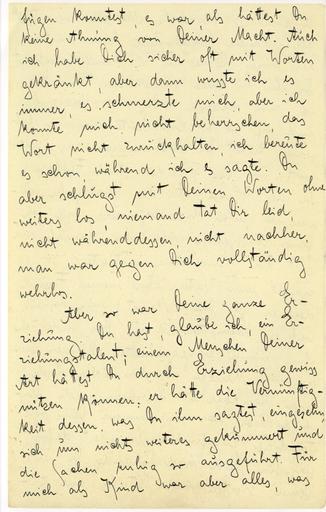 fügen konntest, es war, als hättest Du
keine Ahnung von Deiner Macht. Auch
ich habe Dich sicher oft mit Worten
gekränkt, aber dann wusste ich es
immer, es schmerzte mich, aber ich
konnte mich nicht beherrschen, das
Wort nicht zurückhalten, ich bereute
es schon, während ich es sagte. Du
aber schlugst mit Deinen Worten ohne
weiters los, niemand tat Dir leid,
nicht währenddessen, nicht nachher,
man war gegen Dich vollständig
wehrlos.
Aber so war Deine ganze Er-
ziehung. Du hast, glaube ich, ein Er-
ziehungstalent; einem Menschen Deiner
Art hättest Du durch Erziehung gewiss
nützen können; er hätte die Vernünftig-
keit dessen, was Du ihm sagtest, eingesehn,
sich um nichts weiteres gekümmert und
die Sachen ruhig so ausgeführt. Für
mich als Kind war aber alles, was